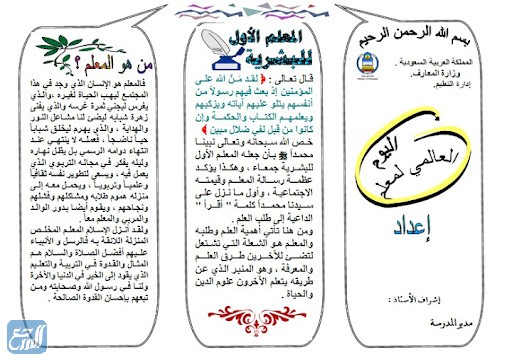 بسم الله الرحمن الرحيم
المملكة العربية السعودية .
وزارة المعارف.
إدارة التعليم.
اليوم
العالمي لمعلم
إعداد
إشراف الأستاذ :
مدير المدرسة
المعلم الأول
للبشرية
قـال تعالى : ﴿ لقـد مَـنَّ الله على
المؤمنين إذ بعث فيهم رسولاً من
أنفسهم يتلو عليهم آياته ويزكيهم
ويعلمهم الكتاب والحكمة وإن
كانوا من قبل لفي ضلال مبين ﴾
خص الله سبحانه وتعالى نبينا
محمداً ﷺ بأن جعله المعلم الأول
للبشرية جمعاء ، وهكذا يؤكد
عظمة رسالة المعلم وقيمته
الاجتماعية ، وأول ما نـزل على
سيدنا محمداً كلمة " اقرأ "
الداعية إلى طلب العلم .
ومن هنا تأتي أهمية العلم وطلبه
والمعلم هو الشعلة التي تشتعل
لتضئ للآخرين طرق العلم
والمعرفة ، وهو المنبر الذي عن
طريقه يتعلم الآخرون علوم الدين
والحياة .
من هو المعلم ؟
فالمعلم هو الإنسان الذي وجد في هذا
المجتمع ليهب الحياة لغيره ،والذي
يغرس ليجني ثمرة غرسه والذي يفني
زهرة شبابه ليضئ لنا مشاعل النور
والهداية ، والذي يهرم ليخلق شباباً
حياً ناضجاً ، فعمله لا ينتهي عند
انتهاء دوامه الرسمي بل يظل نهاره
وليله يفكر في مجاله التربوي الذي
يعمل فيه ، ويسعى لتطوير نفسه ثقافياً
وعلمياً وتربوياً ، ويحمل معه إلى
منزله هموم طلابه ومشاكلهم وفشلهم
ونجاحهم ، ويقوم أيضا بدور الوالد
والمربي والمعلم معاً .
ولقد أنـزل الإسلام المعلم المخلص
المنزلة اللائقة به فالرسل و الأنبياء
عليهم أفضل الصلاة والسلام هم
المثال والقدوة في التربية والتعليم
الذي يقود إلى الخير في الدنيا والآخرة
ولنا في رسول الله وصحابته ومن
تبعهم بإحسان القدوة الصالحة .